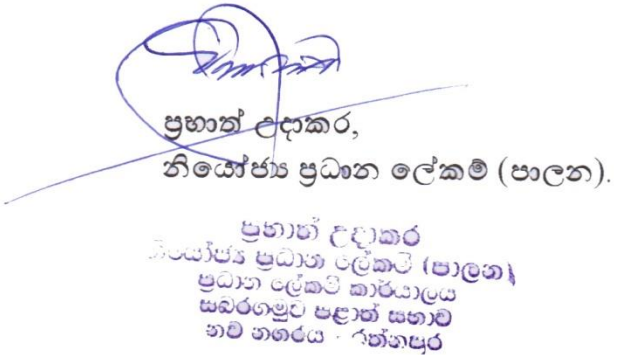 ප්‍රභාත් උදාකර,
නියෝජ්‍ය ප්‍රධාන ලේකම් (පාලන).
ප්‍රභාත් උදාකර
නියෝජ්‍ය ප්‍රධාන ලේකම් (පාලන)
ප්‍රධාන ලේකම් කාර්යාලය
සබරගමුව පළාත් සභාව
නව නගරය - රත්නපුර